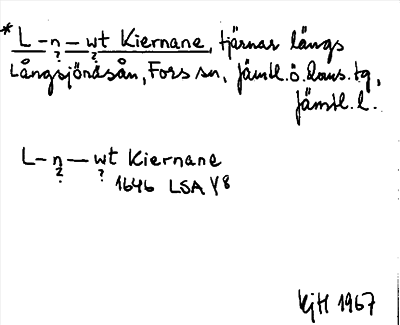 *L-n-wt Kiernane, tjärnar längs
? ?
Långsjönäsån, Fors sn, Jämtl.ö.doms.tg,
Jämtl.l.
L-n-wt Kiernane
? ?
1646 LSA Y8
KjH 1967